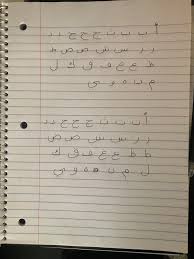 أ ب ت ث ج ح خ د ذ
ر ز س ش ص ض
ط ظ ع غ ف ق ك ل
م ن ه و ي
أ ب ت ث ج ح خ د ذ
ر ز س ش ص ض
ط ظ ع غ ف ق ك
ل م ن ه و ي